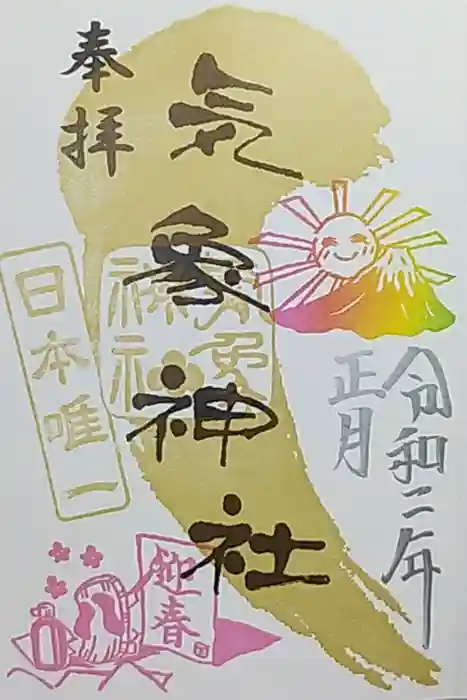 奉拝
気象神社
日本唯一
令和二年
正月
迎春